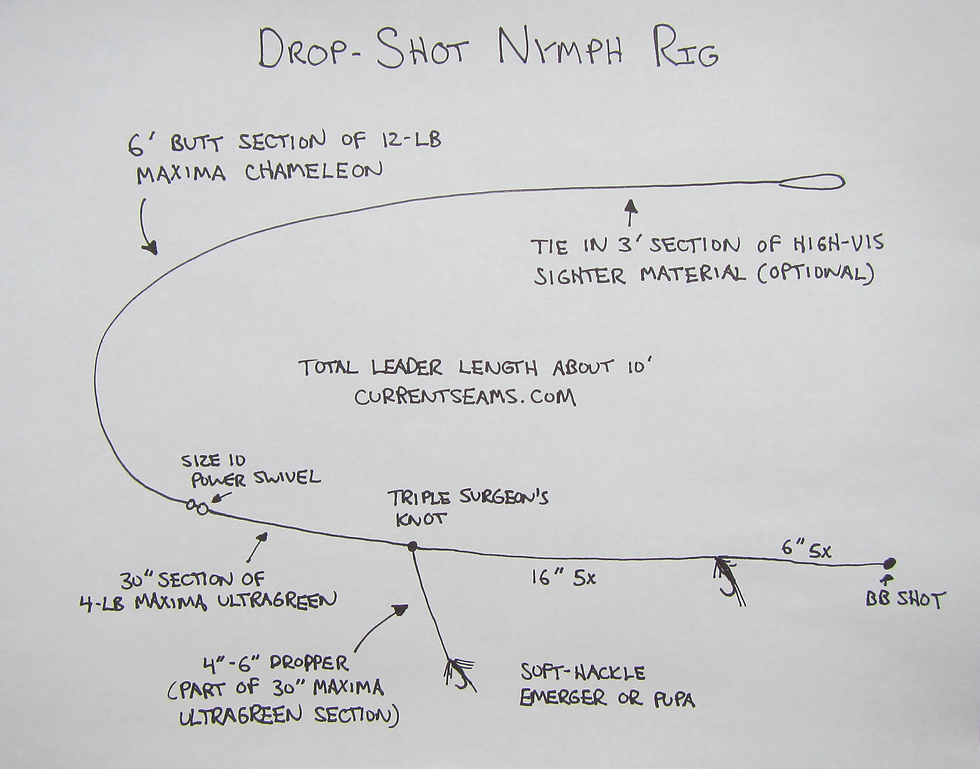 DROP-SHOT NYMPH RIG
6' BUTT SECTION OF 12-LB
MAXIMA CHAMELEON
TIE IN 3' SECTION OF HIGH-VIS
SIGHTER MATERIAL (OPTIONAL)
TOTAL LEADER LENGTH ABOUT 10'
CURRENTSEAMS.COM
SIZE 10
POWER SWIVEL
TRIPLE SURGEON'S
KNOT
6" 5X
16" 5X
BB SHOT
30" SECTION OF
4-LB MAXIMA ULTRAGREEN
4"-6" DROPPER
(PART OF 30" MAXIMA
ULTRAGREEN SECTION)
SOFT-HACKLE
EMERGER OR PUPA